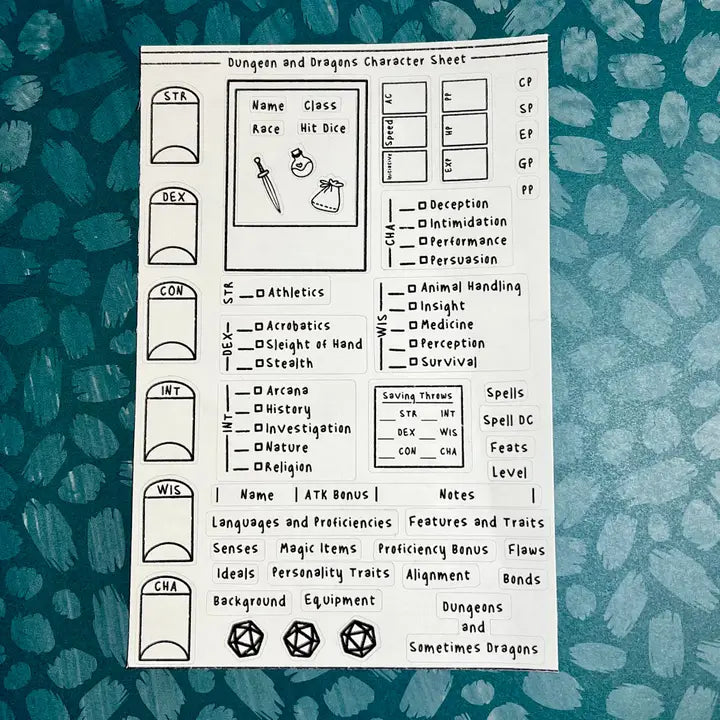 Dungeon and Dragons Character Sheet
STR
DEX
CON
INT
WIS
CHA
Name Class
Race Hit Dice
AC
Speed
Initiative
PP
HP
EXP
CP
SP
EP
GP
PP
CHA
Deception
Intimidation
Performance
Persuasion
STR
Athletics
DEX
Acrobatics
Sleight of Hand
Stealth
WIS
Animal Handling
Insight
Medicine
Perception
Survival
INT
Arcana
History
Investigation
Nature
Religion
Saving Throws
STR INT
DEX WIS
CON CHA
Spells
Spell DC
Feats
Level
Name ATK Bonus Notes
Languages and Proficiencies Features and Traits
Senses Magic Items Proficiency Bonus Flaws
Ideals Personality Traits Alignment Bonds
Background Equipment
Dungeons
and
Sometimes Dragons